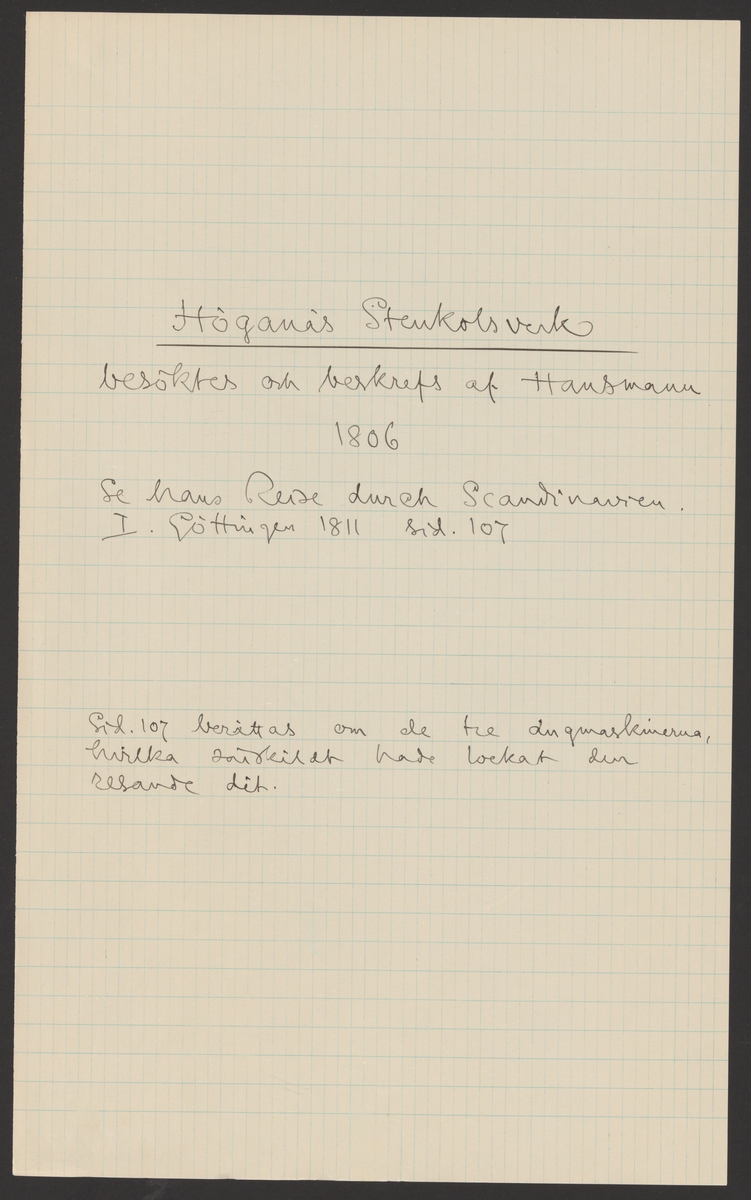 Höganäs Stenkolsverk
besöktes och beskrefs af Hausmann
1806
Se hans Reise durch Scandinavien.
I. Göttingen 1811 sid. 107
Sid. 107 berättas om de tre ångmaskinerna,
hvilka särskildt hade lockat den
resande dit.